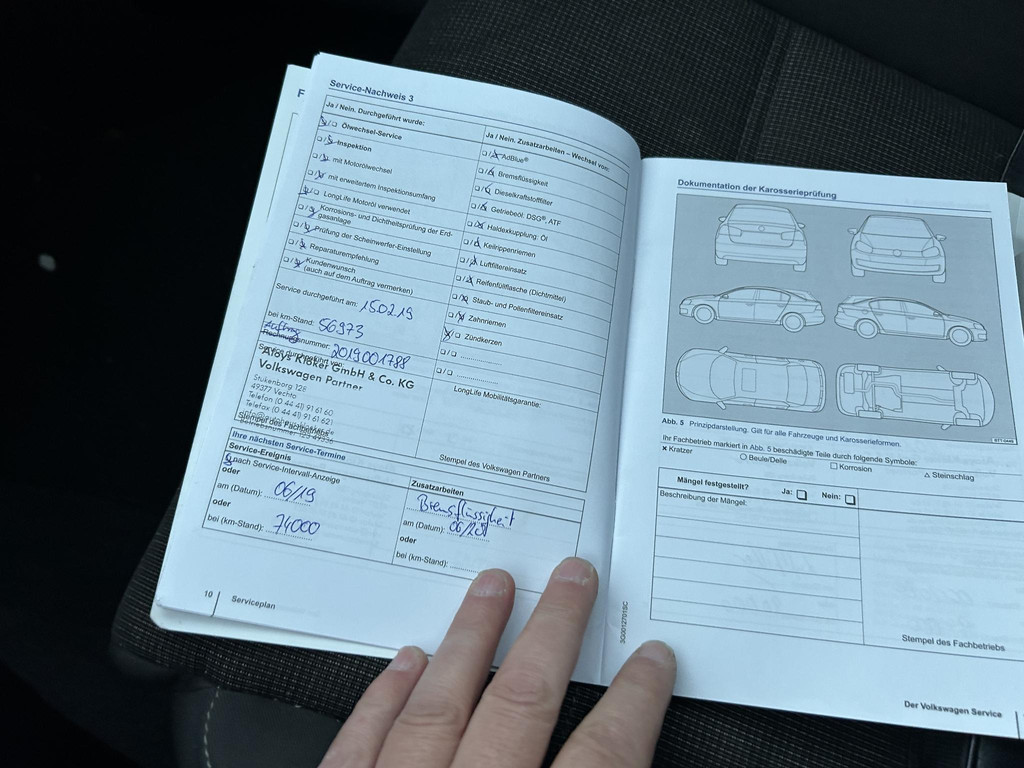 F
Service-Nachweis 3
Ja / Nein. Durchgeführt wurde:
Ölwechsel-Service
Inspektion
mit Motorölwechsel
mit erweitertem Inspektionsumfang
LongLife Motoröl verwendet
Korrosions- und Dichtheitsprüfung der Erd-
gasanlage
Prüfung der Scheinwerfer-Einstellung
Reparaturempfehlung
Kundenwunsch
(auch auf dem Auftrag vermerken)
Service durchgeführt am: 150219
bei km-Stand: 56973
Auftrag
Rechnungsnummer: 2019001788
Service durchgeführt von:
Aloys Klöker GmbH & Co. KG
Volkswagen Partner
Stukenborg 128
49377 Vechta
Telefon (0 44 41) 91 61 60
Telefax (0 44 41) 91 61 62
Stempel des Fachbetriebs
Ja / Nein. Zusatzarbeiten – Wechsel von:
AdBlue®
Bremsflüssigkeit
Dieselkraftstofffilter
Getriebeöl: DSG®, ATF
Haldexkupplung: Öl
Keilrippenriemen
Luftfiltereinsatz
Reifenfüllflasche (Dichtmittel)
Staub- und Pollenfiltereinsatz
Zahnriemen
Zündkerzen
LongLife Mobilitätsgarantie:
Stempel des Volkswagen Partners
Ihre nächsten Service-Termine
Service-Ereignis
nach Service-Intervall-Anzeige
oder
am (Datum): 06/19
oder
bei (km-Stand): 74000
Zusatzarbeiten
Bremsflüssigkeit
am (Datum): 06/20
oder
bei (km-Stand):
10 Serviceplan
Dokumentation der Karosserieprüfung
Abb. 5 Prinzipdarstellung. Gilt für alle Fahrzeuge und Karosserieformen.
Ihr Fachbetrieb markiert in Abb. 5 beschädigte Teile durch folgende Symbole:
× Kratzer ○ Beule/Delle □ Korrosion △ Steinschlag
Mängel festgestellt? Ja: Nein:
Beschreibung der Mängel:
Stempel des Fachbetriebs
3G0012701SC
Der Volkswagen Service